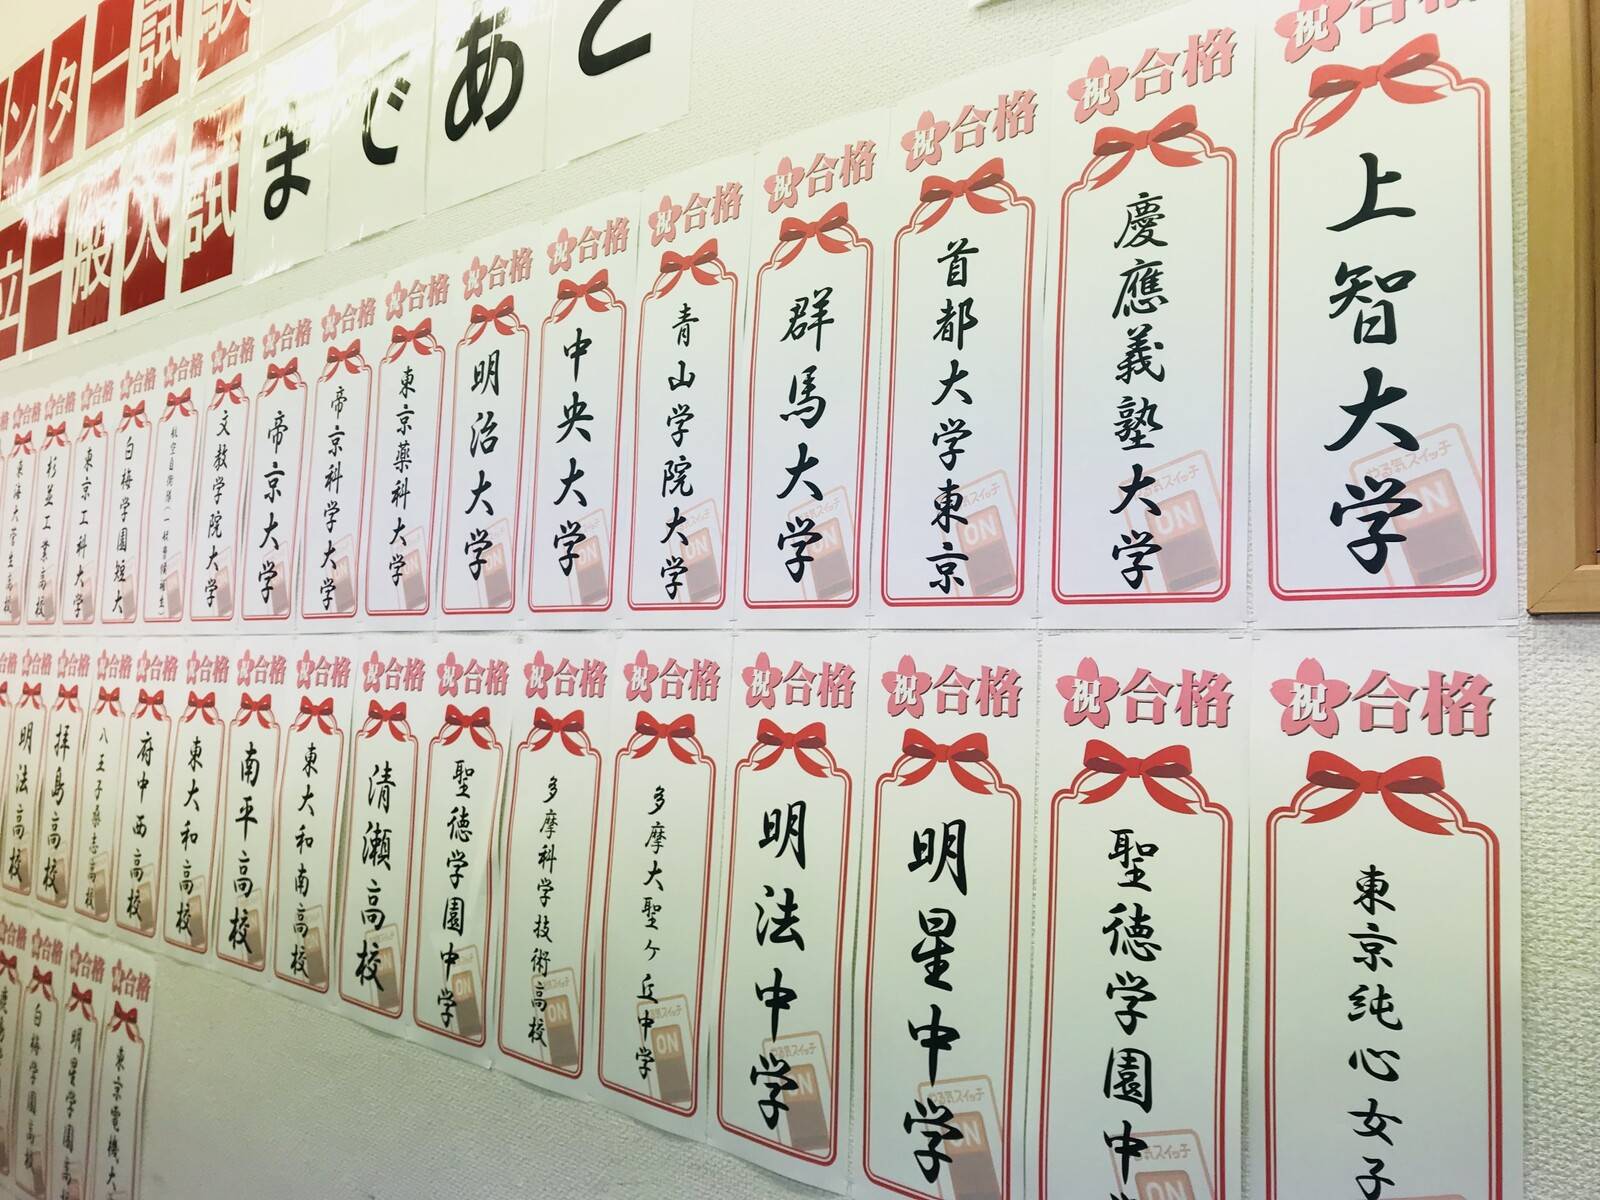 ンター試験
立一般入試
まであと
祝合格
上智大学
やる気スイッチ
ON
祝合格
慶應義塾大学
やる気スイッチ
ON
祝合格
首都大学東京
スイッチ
ON
祝合格
群馬大学
スイッチ
ON
祝合格
青山学院大学
ON
祝合格
中央大学
祝合格
明治大学
祝合格
東京薬科大学
祝合格
帝京科学大学
祝合格
帝京大学
祝合格
文教学院大学
祝合格
航空自衛隊(一般曹候補生)
祝合格
白梅学園短大
祝合格
東京工科大学
祝合格
杉並工業高校
祝合格
東海大菅生高校
祝合格
東京純心女子
祝合格
聖徳学園中
スイッチ
ON
祝合格
明星中学
やる気スイッチ
ON
祝合格
明法中学
やる気スイッチ
ON
祝合格
多摩大聖ヶ丘中学
スイッチ
ON
祝合格
多摩科学技術高校
スイッチ
ON
祝合格
聖徳学園中学
祝合格
清瀬高校
祝合格
東大和南高校
祝合格
南平高校
祝合格
東大和高校
祝合格
府中西高校
祝合格
八王子桑志高校
祝合格
拝島高校
祝合格
明法高校
祝合格
東京電機大
祝合格
明星学園高
祝合格
白梅学園高校
合格